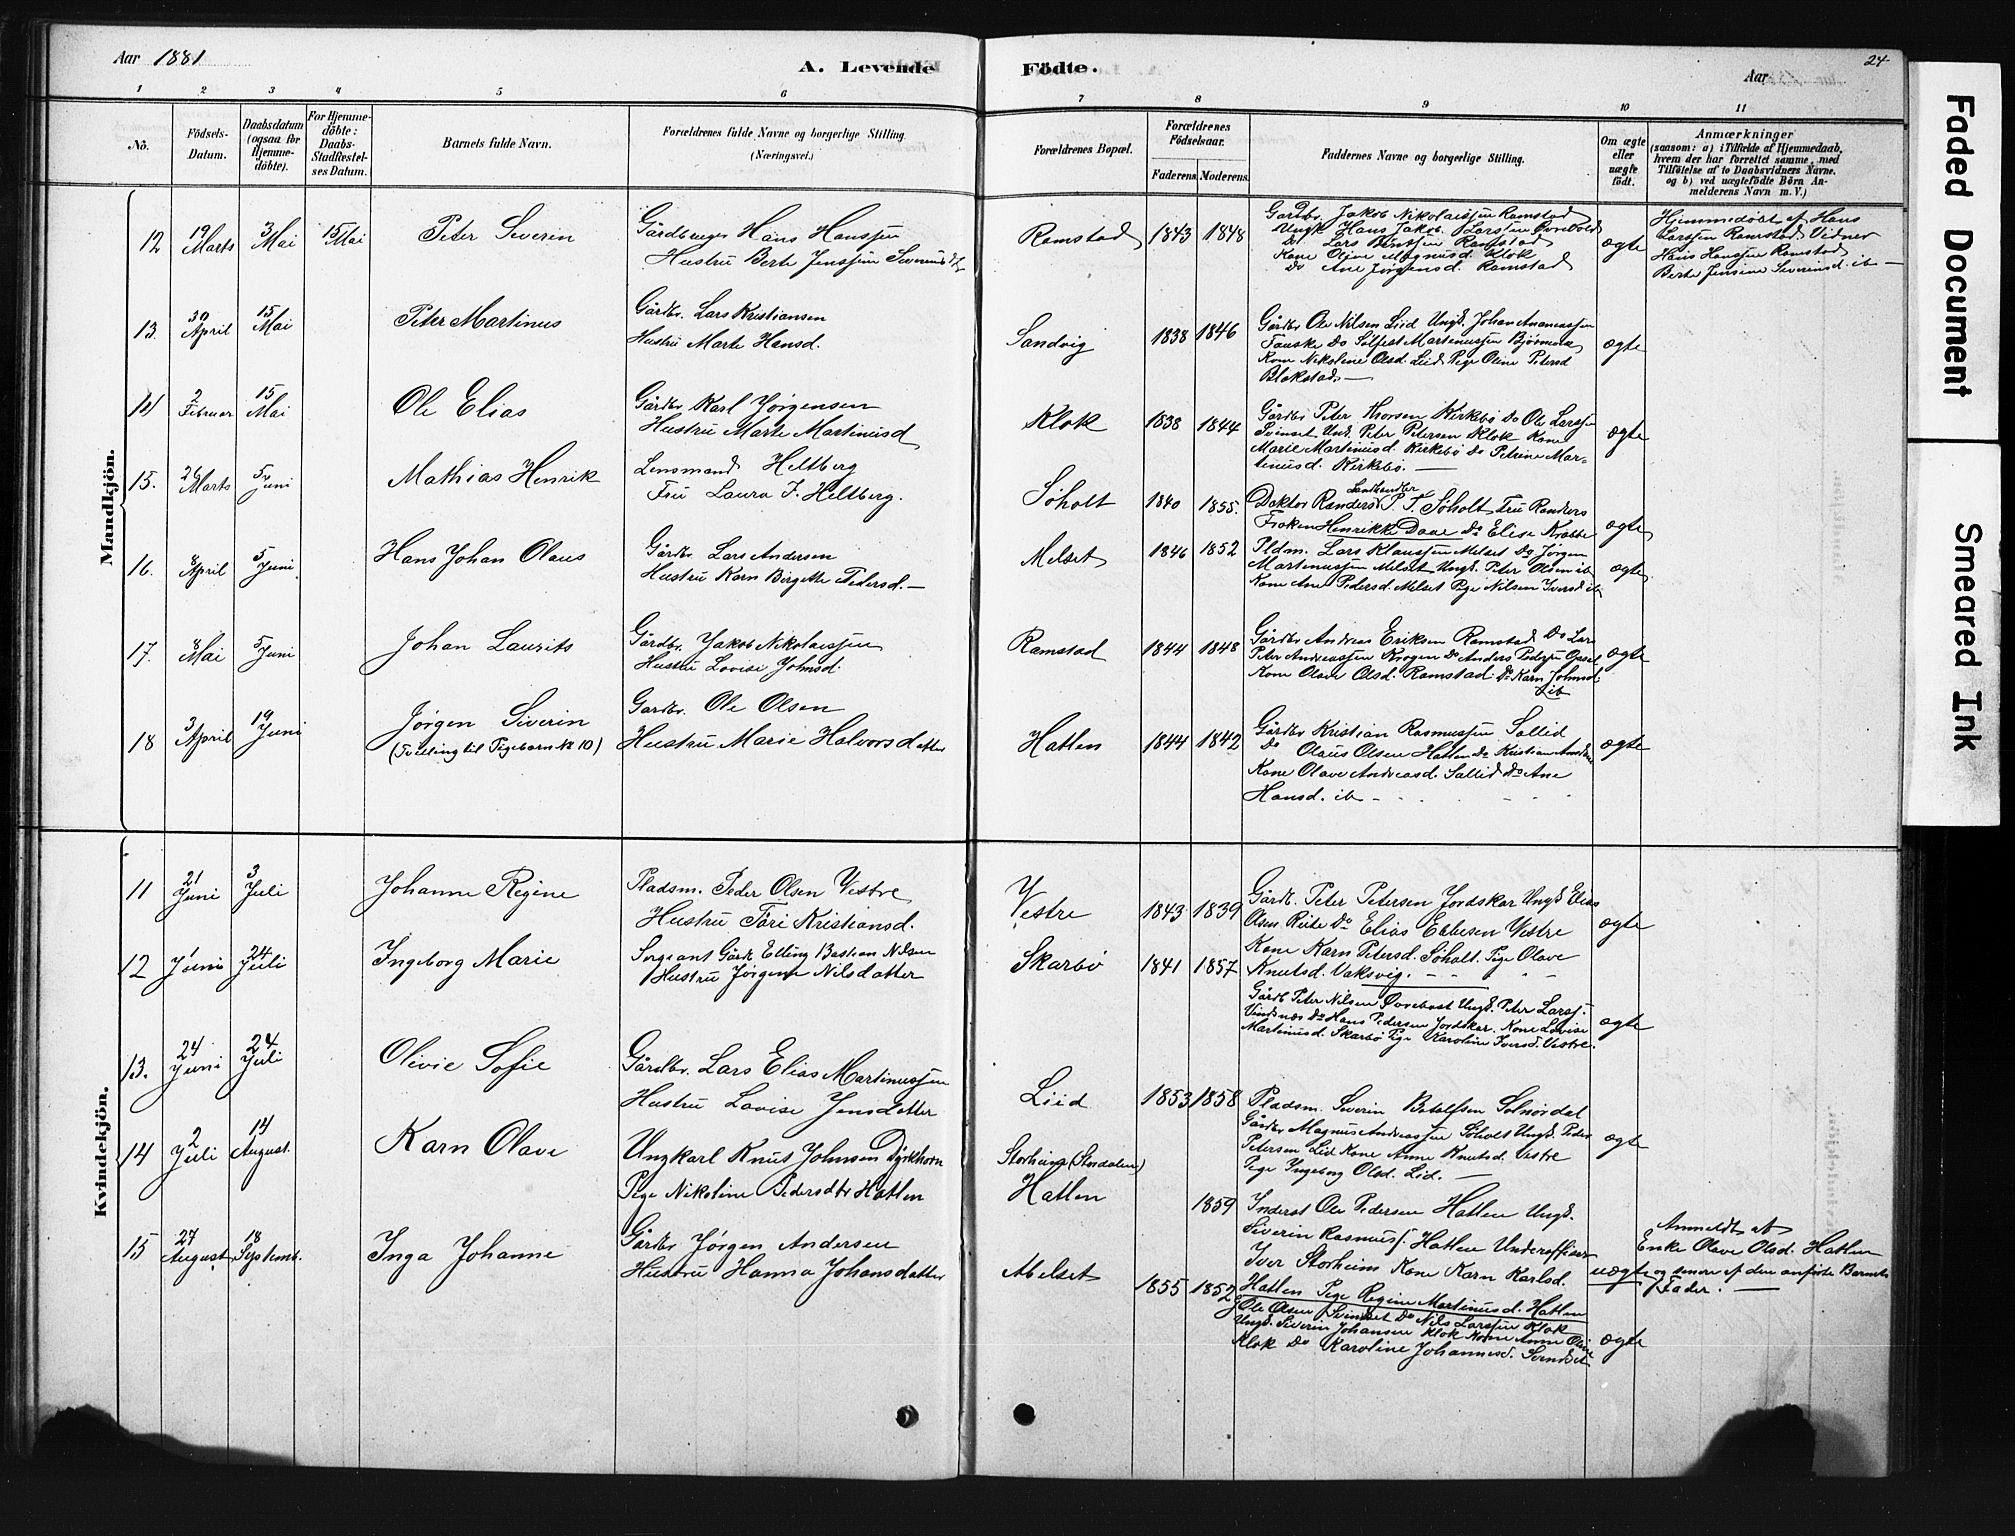 Aar 1881
A. Levende Födte.
Aar
24
1 2 3 4 5 6 7 8 9 10 11
No.
Födsels-Datum.
Daabsdatum (ogsaa for Hjemme-döbte).
For Hjemme-döbte: Daabs-Stadfæstel-ses Datum.
Barnets fulde Navn.
Forældrenes fulde Navne og borgerlige Stilling.
(Næringsvei.)
Forældrenes Bopæl.
Forældrenes Födselsaar.
Faderens. Moderens.
Faddernes Navne og borgerlige Stilling.
Om ægte eller uægte født.
Anmærkninger
(saasom: a) i Tilfælde af Hjemmedaab,
hvem der har forrettet samme, med
Tilföielse af to Daabsvidners Navne.
og b) ved uægtefödte Börn An-
melderens Navn m. V.)
Mandkjön.
12 19 Marts 3 Mai 15 Mai Peter Severin
Gårdbruger Hans Hanssen
Hustru Berte Jenssine Severinsd.
Ramstad 1843 1848
Gardbr. Jakob Nikolaissen Ramstad
Ungk Hans Jakob Larssen
Do Lars Ramstad
Kone Oline Magnusd. Klok
Do Ane Jørgensd. Ramstad
ægte
Hjemmedøbt af Hans
Larssen Ramstad Vidner
Hans Hanssen Ramstad
Berte Jensine Severinsd. ib
13. 30 April 15 Mai Peter Martinus
Gårdbr. Lars Kristiansen
Hustru Marte Hansd.
Sandvig 1838 1846
Gårdbr Ole Nilsen Liid Ungk. Johan
Fauske Do Martinussen
Kone Nikoline Olsd. Liid Pige Oline Petersd
Blakstad
ægte
14 2 Februar 15 Mai Ole Elias
Gårdbr Karl Jørgensen
Hustru Marte Martinusd
Klok 1838 1844
Gårdbr Peter Thorsen Kirkebø Do Ole Larssen
Svinset Ungk. Peter Petersen Klok Kone
Marie Martinusd. Kirkebø Do Petrine Mar-
tinusd. Kirkebø.
ægte
15. 26 Marts 5 Juni Mathias Henrik
Lensmand Heltberg
Fru Laura J. Heltberg.
Søholt 1840 1855.
Landhandler
Doktor Randers P. T. Søholt Fru Randers
Frøken Henrikke Daae Do Elise Krabbe
ægte
16. 8 April 5 Juni Hans Johan Olaus
Gårdbr. Lars Andersen
Hustru Karn Bergette Pedersd.
Melset 1846 1852
Pldm. Lars Klaussen Melset Do Jørgen
Martinussen Melset Ungk. Peter Olsen ib
Kone Ane Pedersd. Melset Pige Nilsen Iversd ib
ægte
17. 8 Mai 5 Juni Johan Laurits
Gårdbr. Jakob Nikolaissen
Hustru Lovise Johnsd.
Ramstad 1844 1848
Gårdbr Andreas Eriksen Ramstad Do Lars
Peter Andreassen Krogen Do Anders
Kone Olave Olsd. Ramstad Do Karn Johnsd.
ib
ægte
18 3 April 19 Juni Jørgen Severin
(Tvilling til Pigebarn No 10)
Gardbr. Ole Olsen
Hustru Marie Halvorsdatter
Hatlen 1844 1842
Gårdbr Kristian Rasmussen Sallid
Do Olaus Olsen Hatlen Do Kristian
Kone Olave Andreasd. Sallid Do Ane
Hansd. ib
ægte
Kvindekjön.
11 21 Juni 3 Juli Johanne Regine
Pladsm. Peder Olsen Vestre
Hustru Kristiansd.
Vestre 1843 1839
Gårdb. Peter Petersen Jordskar Ungk Elias
Olsen Do Elias Ebbesen Vestre
Kone Karn Petersd. Søholt. Pige Olave
Knutsd. Vaksvig.
ægte
12 1 Juni 24 Juli Ingeborg Marie
Sergeant Gårdb Elling Bastian Nilsen
Hustru Jørgine Nilsdatter
Skarbø 1841 1857
Gårdb Peter Nilsen Ungk. Peter Larss.
Vindsnes Do Hans Pedersen Jordskar. Kone Lovise
Martinusd. Skarbø Pige Karoline Iversd. Vestre.
ægte
13. 24 Juni 24 Juli Olivie Sofie
Gårdbr. Lars Elias Martinussen
Hustru Lovise Jensdatter
Liid 1853 1858
Pladsm. Severin Solnørdal
Gårdbr Magnus Andreassen Søholt Ungk. Peder
Petersen Liid Kone Anne Knutsd. Vestre
Pige Ingeborg Olsd. Lid.
ægte
14 2 Juli 14 August. Karn Olave
Ungkarl Knut Johnsen Dyrkhorn
Pige Nikoline Pedersdtr Hatlen
Storheim (Stordalen)
Hatlen 1859
Inderst Ole Pedersen Hatlen Ungk.
Severin Rasmuss. Hatlen Underoffiser
Iver Storheim Kone Karn Karlsd.
Hatlen Pige Regine Martinusd. Hatlen
uægte
Anmeldt af
Enke Olave Olsd. Hatlen
og senere af den anførte Barnets
Fader.
15 27 August 18 Septemb. Inga Johanne
Gårdbr Jørgen Andersen
Hustru Hanna Johansdatter
Melset 1855 1852
G Ole Olsen Svindset Do Nils Larssen Klok
Ungk. Severin Johansen Klok Kone Anne Oline
Klok Do Karoline Johannesd. Svindset
ægte
Faded Document
Smeared Ink